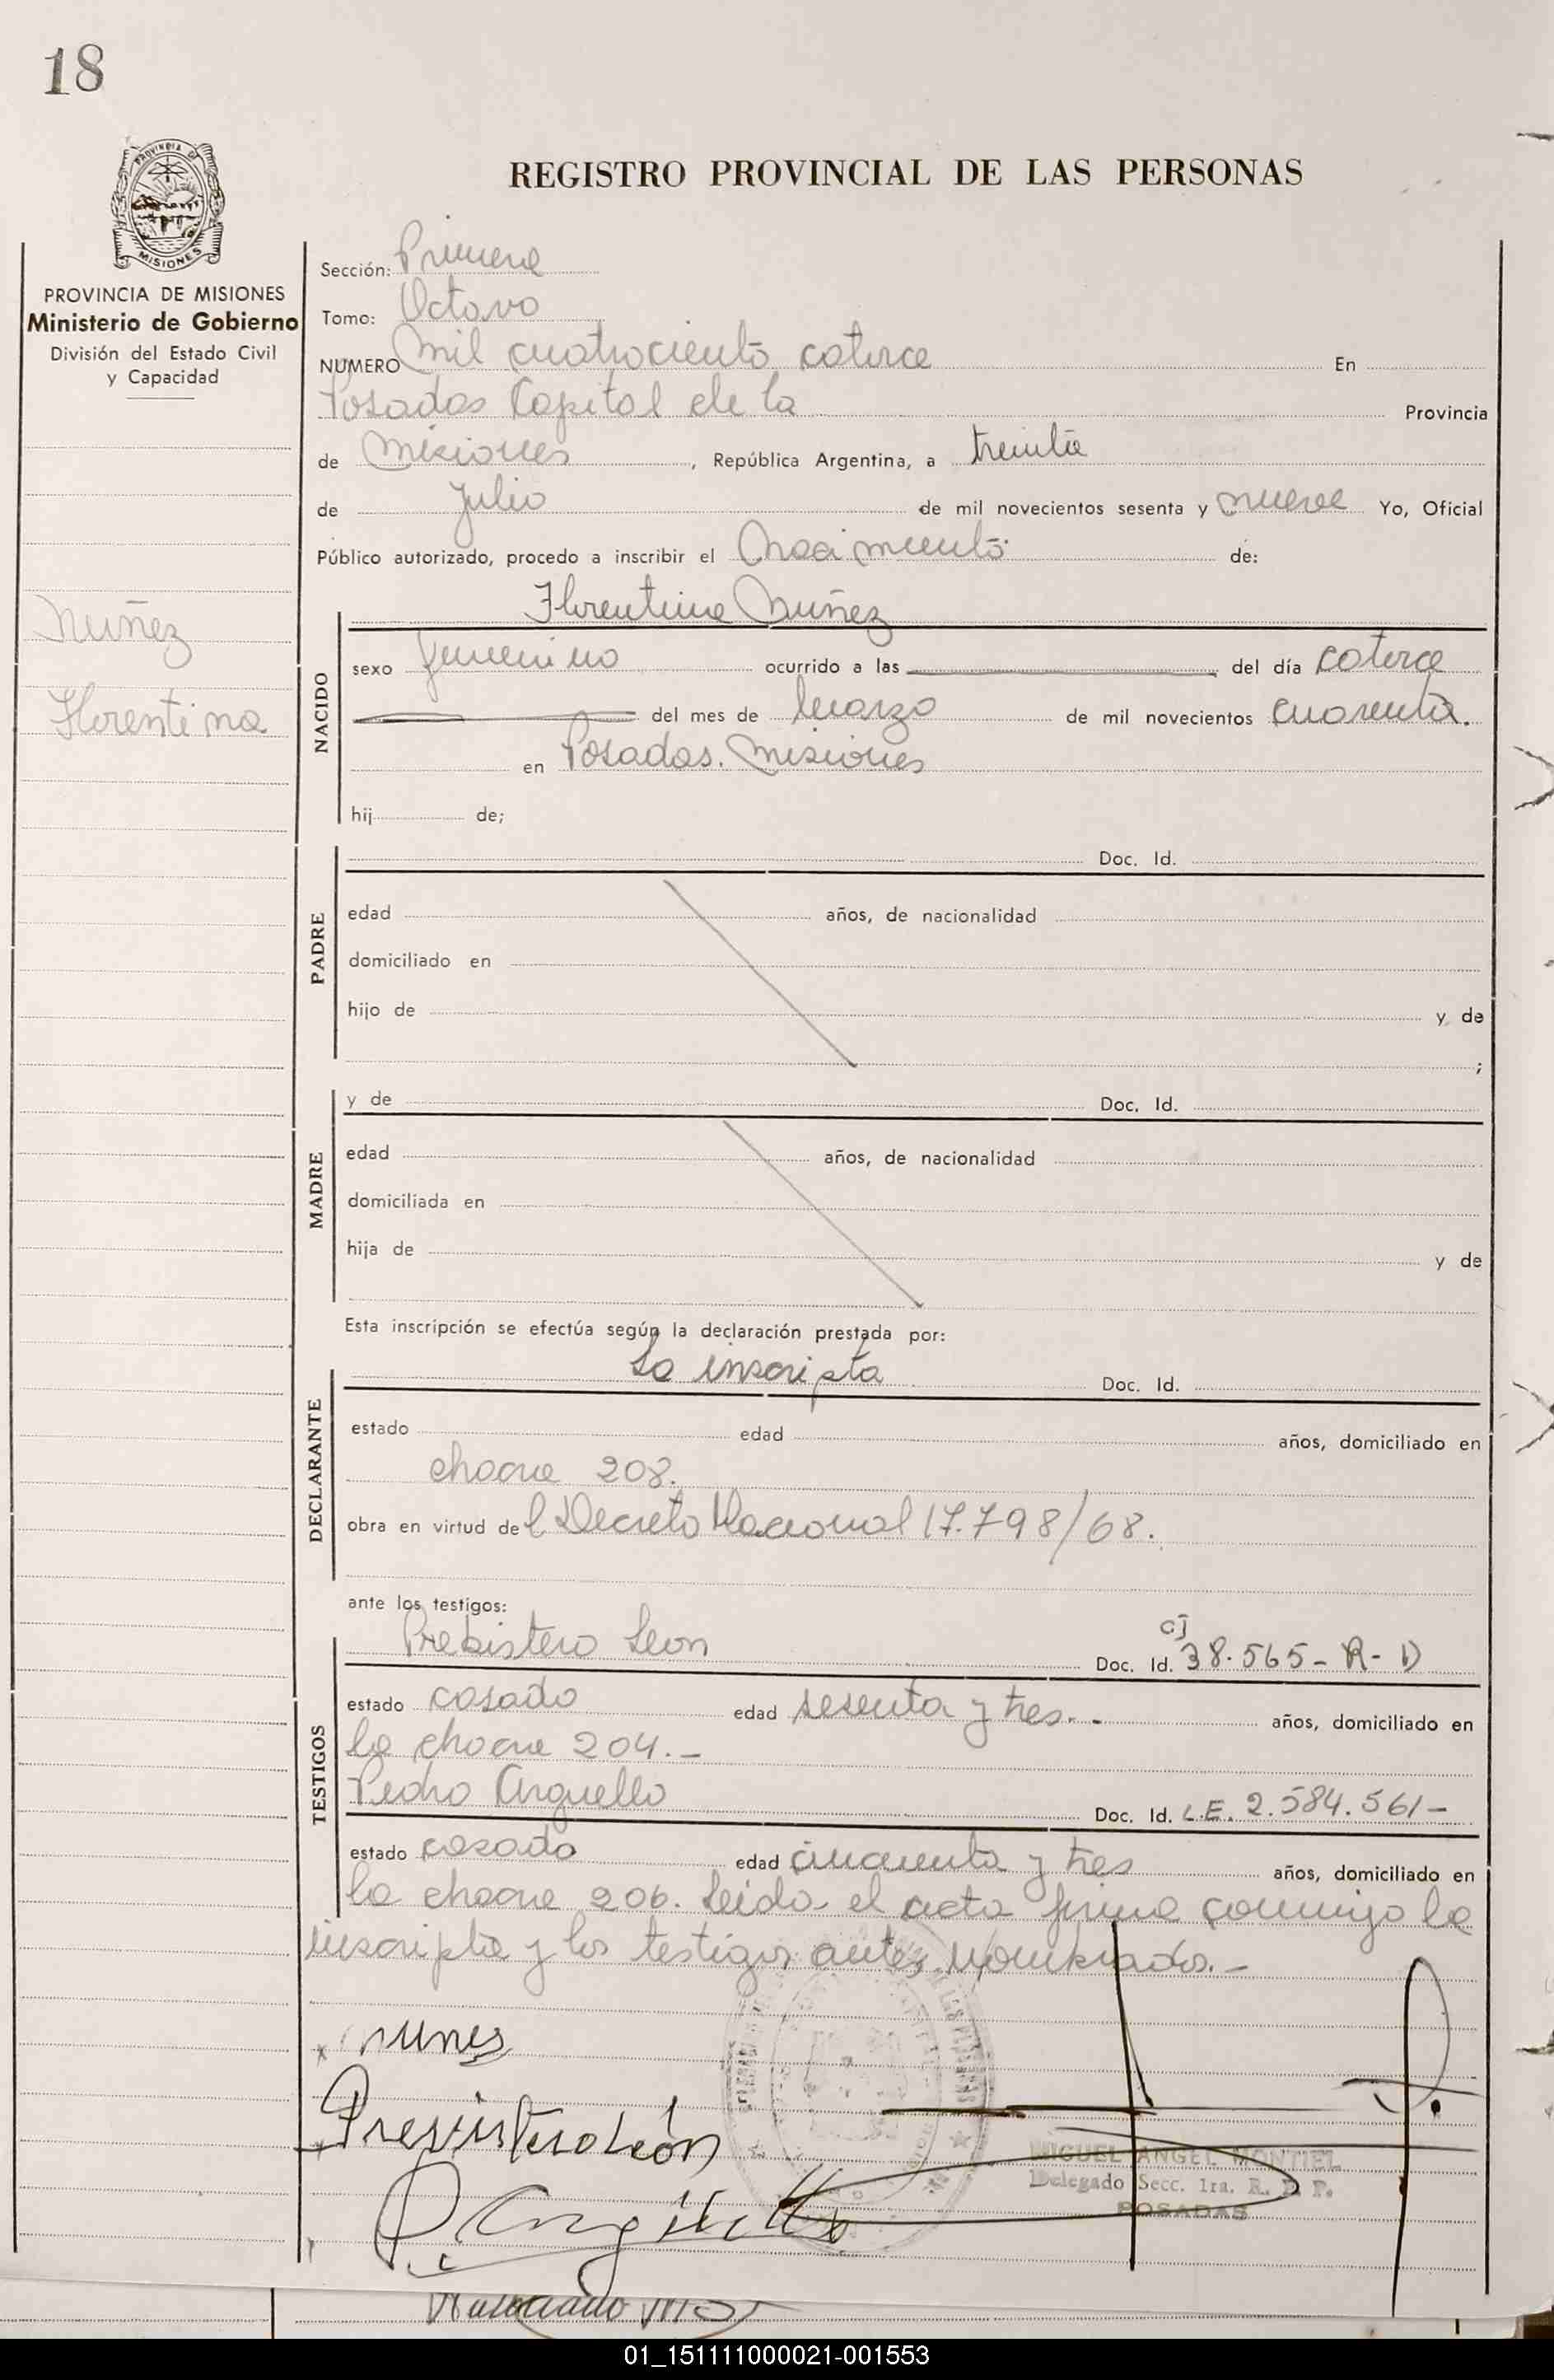 18
REGISTRO PROVINCIAL DE LAS PERSONAS
PROVINCIA DE MISIONES
Ministerio de Gobierno
División del Estado Civil
y Capacidad
Nuñez
Florentina
Sección: Primera
Tomo: Octavo
NUMERO Mil cuatrociento catorce En
Posadas Capital de la Provincia
de Misiones, República Argentina, a treinta
de Julio de mil novecientos sesenta y nueve Yo, Oficial
Público autorizado, procedo a inscribir el Nacimiento de:
Florentina Nuñez
NACIDO
sexo femenino ocurrido a las del día catorce
del mes de Marzo de mil novecientos cuarenta.
en Posadas. Misiones
hij de;
Doc. Id.
PADRE
edad años, de nacionalidad
domiciliado en
hijo de y de
;
y de Doc. Id.
MADRE
edad años, de nacionalidad
domiciliada en
hija de y de
Esta inscripción se efectúa según la declaración prestada por:
La inscripta Doc. Id.
DECLARANTE
estado edad años, domiciliado en
chacra 208.
obra en virtud del Decreto Nacional 17.798/68.
ante los testigos:
Prebistero Leon Doc. Id. CI 38.565-R-D
TESTIGOS
estado casado edad sesenta y tres.- años, domiciliado en
la chacra 204.-
Pedro Arguello Doc. Id. L.E. 2.584.561-
estado casado edad cincuenta y tres años, domiciliado en
la chacra 206. Leida el acta firma conmigo la
inscripta y los testigos antes nombrados.-
x nunes
Previstero León
P Arguello
MIGUEL ANGEL MONTIEL
Delegado Secc. 1ra. R. P. P.
POSADAS
01_151111000021-001553